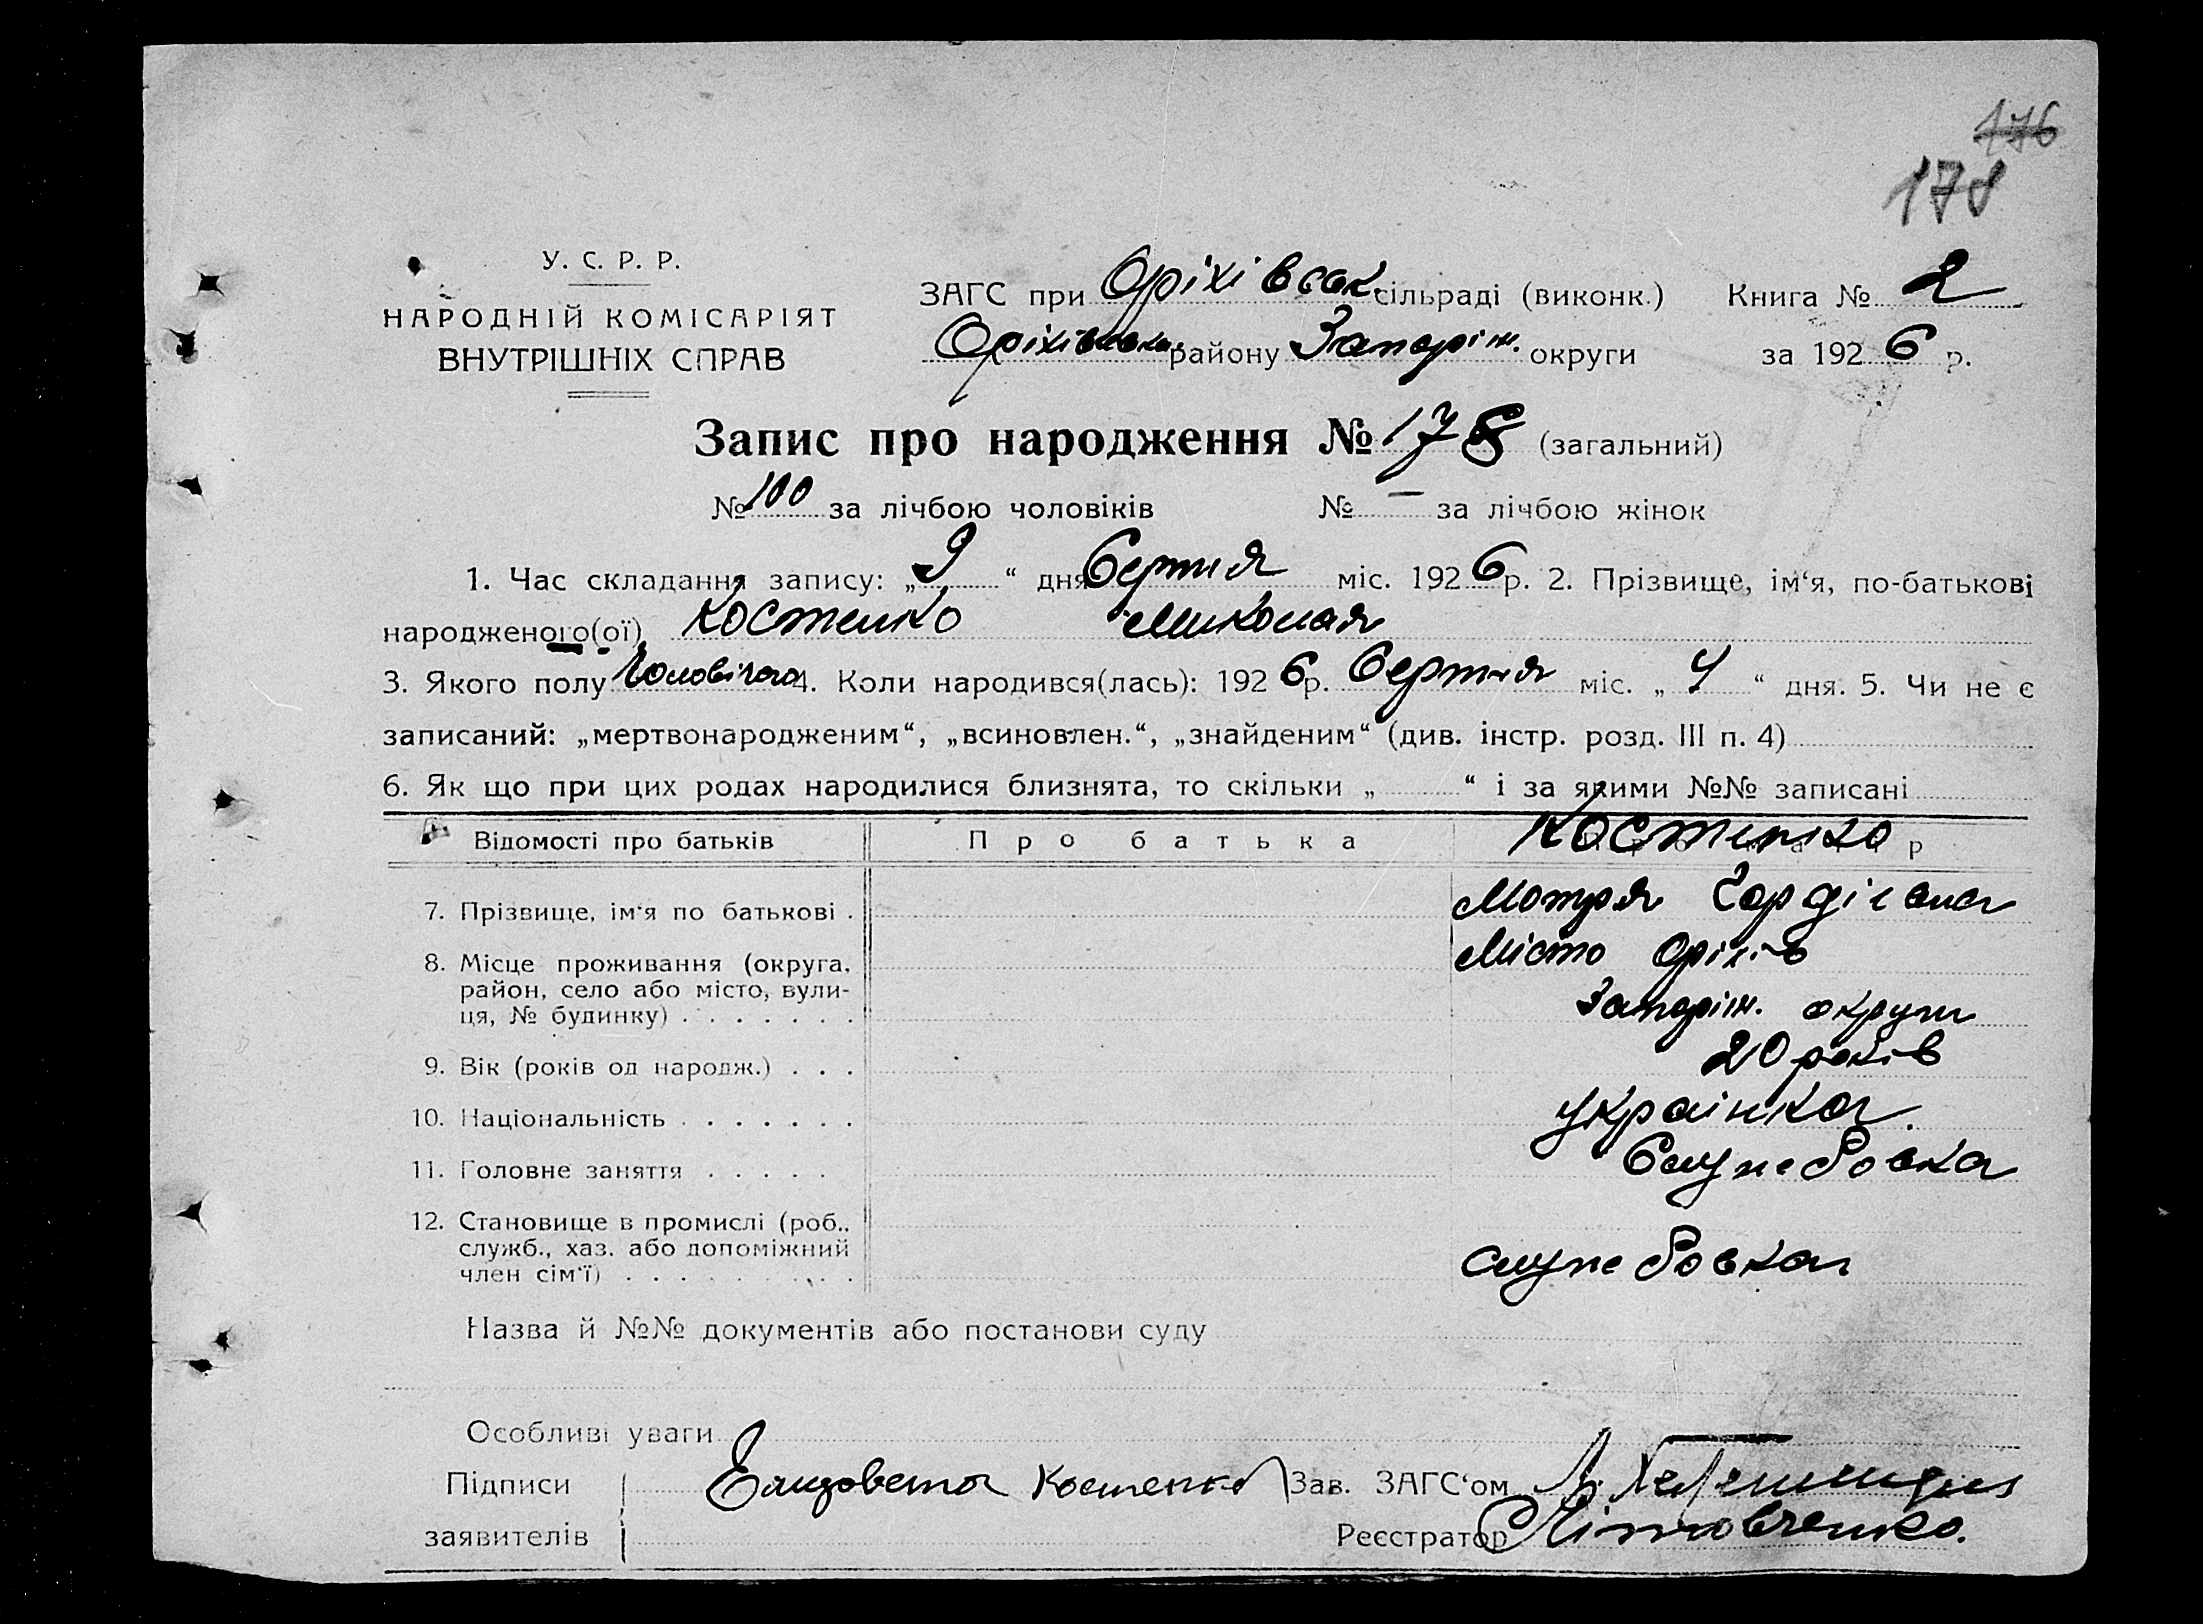 176
178
У. С. Р. Р.
НАРОДНІЙ КОМІСАРІЯТ
ВНУТРІШНІХ СПРАВ
ЗАГС при Оріхівськ. сільраді (виконк.) Книга № 2
Оріхівськ. району Запоріж. округи за 1926 р.
Запис про народження № 178 (загальний)
№ 100 за лічбою чоловіків № — за лічбою жінок
1. Час складання запису: „9“ дня Серпня міс. 1926 р. 2. Прізвище, ім‘я, по-батькові
народженого(ої) Костенко Миколая
3. Якого полу Чоловічого 4. Коли народився(лась): 1926 р. Серпня міс. „4“ дня. 5. Чи не є
записаний: „мертвонародженим“, „всиновлен.“, „знайденим“ (див. інстр. розд. III п. 4)
6. Як що при цих родах народилися близнята, то скільки „ “ і за якими №№ записані
Відомості про батьків Про батька Костенко
7. Прізвище, ім‘я по батькові . Мотря Гордієвна
8. Місце проживання (округа, Місто Оріхів
район, село або місто, вули-
ця, № будинку) . . . . . . . Запоріж. округи
9. Вік (років од народж.) . . . 20 років
10. Національність . . . . . . . українка.
11. Головне заняття . . . . . Служебовка
12. Становище в промислі (роб.,
служб., хаз. або допоміжний служебовка
член сім‘ї) . . . . . . . . . .
Назва й №№ документів або постанови суду
Особливі уваги
Підписи Елизовета Костенко Зав. ЗАГС‘ом
заявителів Реєстратор Літовченко.